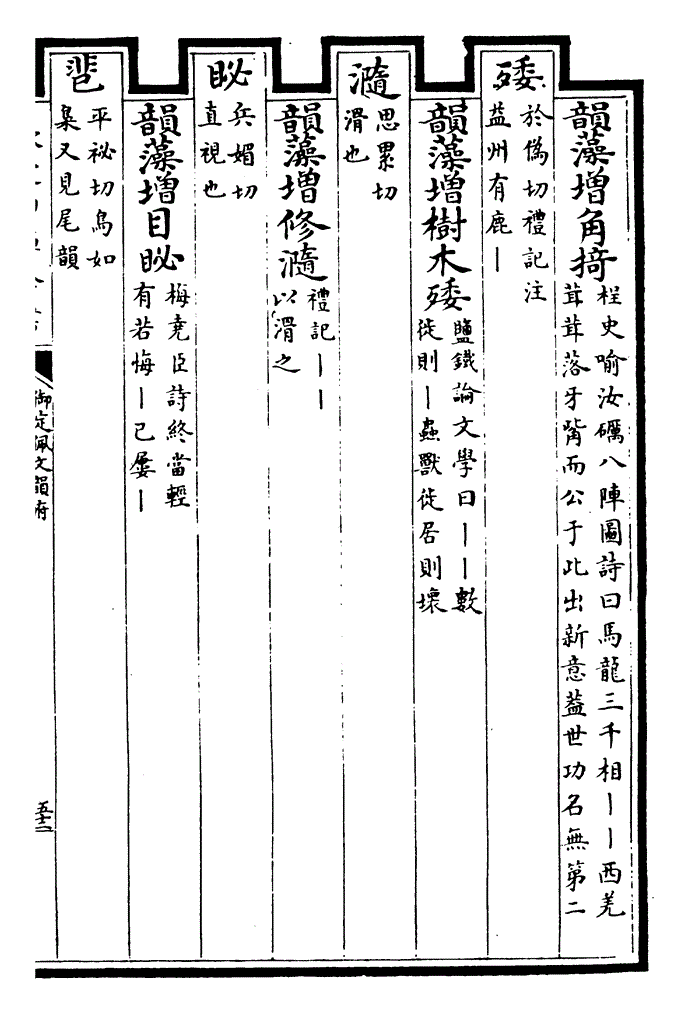 韻藻增角掎
桯史喻汝礪八陣圖詩曰馬龍三千相丨丨西羌
茸茸落牙觜而公于此出新意葢世功名無第二
矮
於偽切禮記注
益州有鹿丨
韻藻增樹木矮
鹽鐵論文學曰丨丨數
徙則丨蟲獸徙居則壞
瀡
思累切
滑也
韻藻增修瀡
禮記丨丨
以滑之
眏
兵媚切
直視也
韻藻增目眏
梅堯臣詩終當輕
有若悔丨已屢丨
平祕切鳥如
梟又見尾韻
御定佩文韻府
五十二